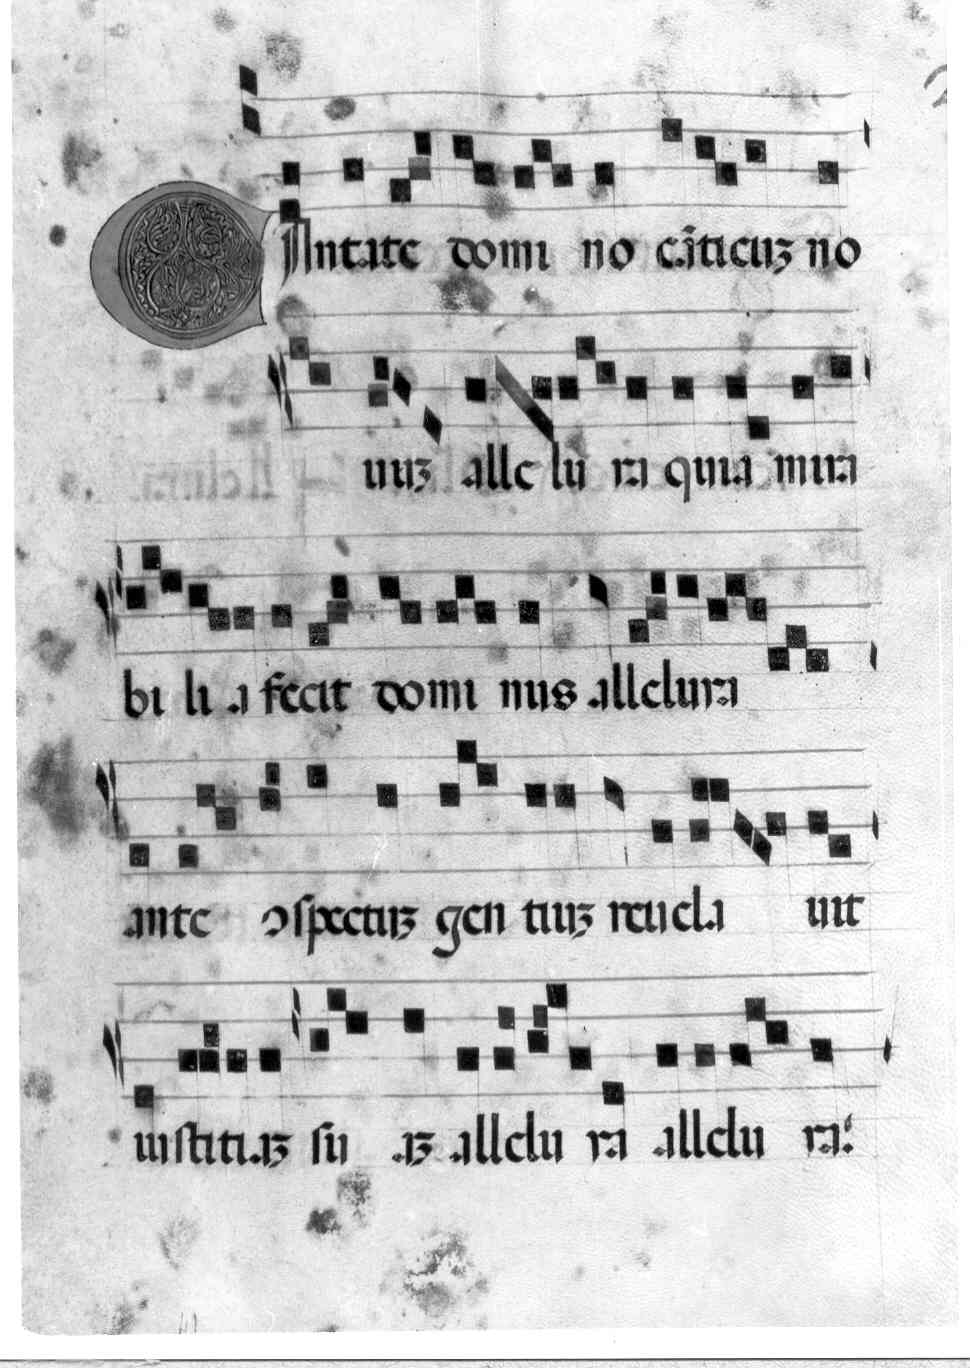 Cantate domi no cāticuʒ no
uuʒ alle lu ia quia mira
bi li a fecit domi nus alleluia
ante ɔspectuʒ gen tiuʒ reuela uit
iustitiaʒ su aʒ allelu ia allelu ia.